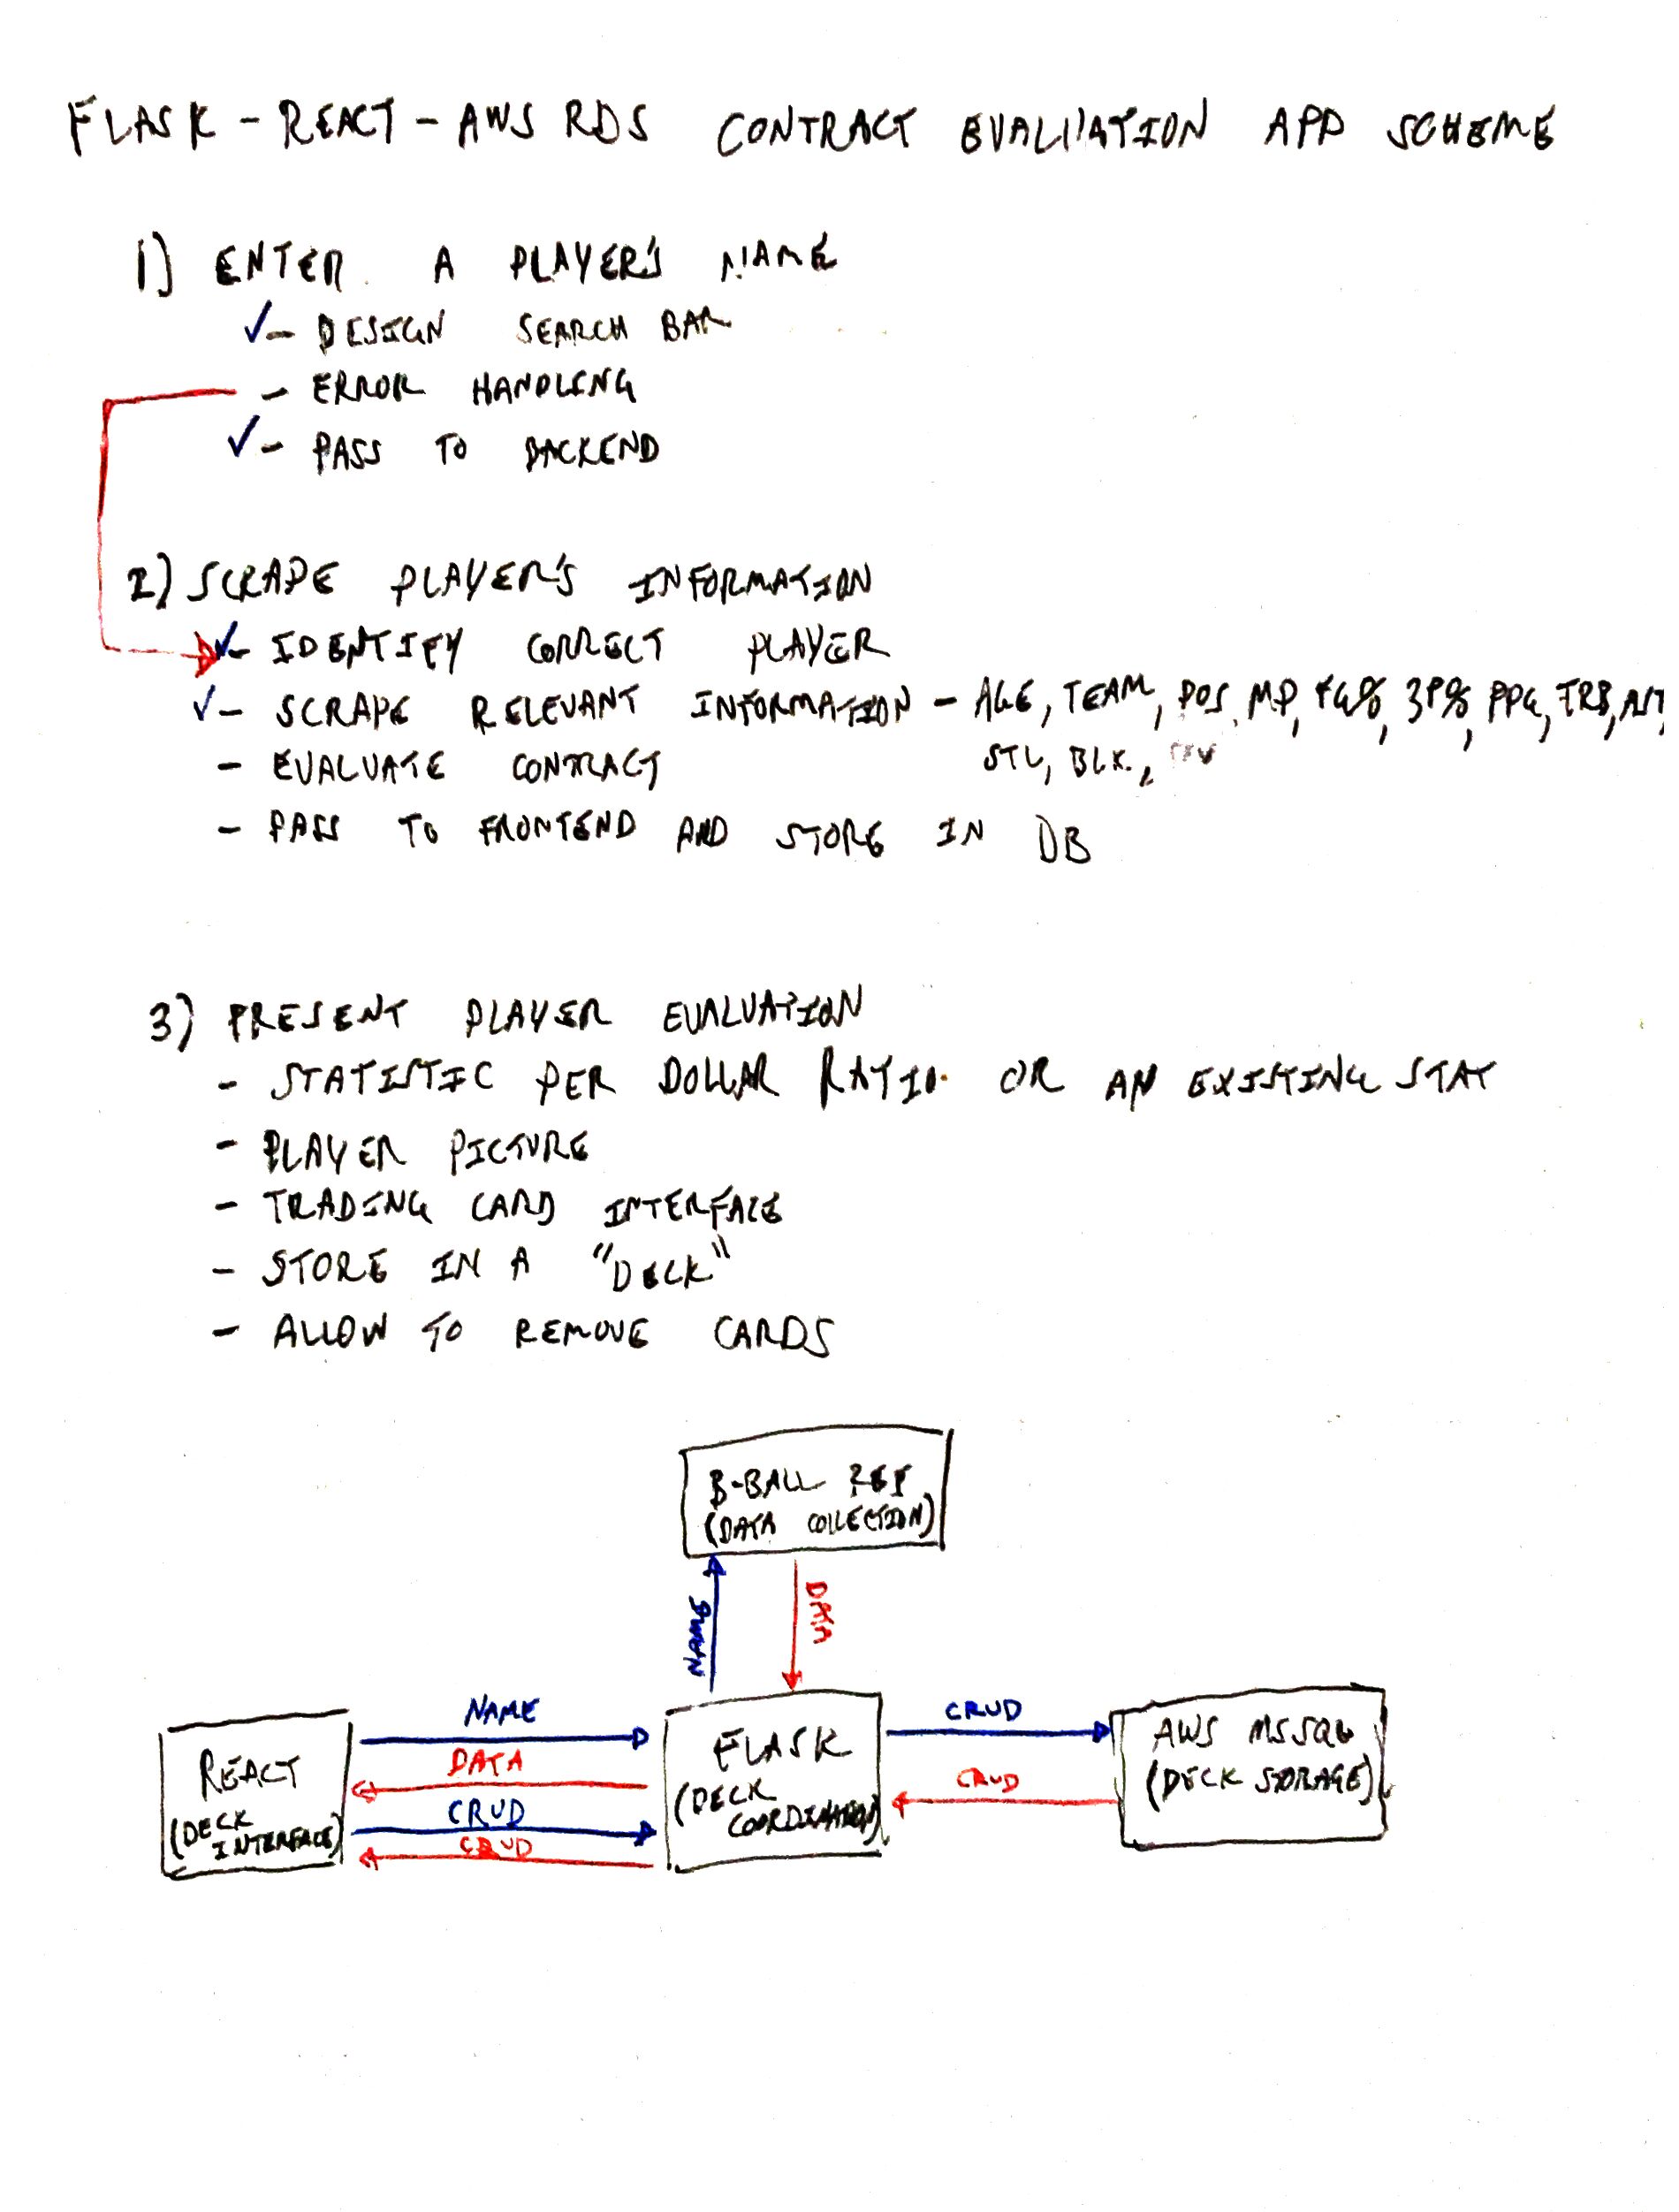 FLASK - REACT - AWS RDS CONTRACT EVALUATION APP SCHEME
1) ENTER A PLAYER'S NAME
✓- DESIGN SEARCH BAR
- ERROR HANDLING
✓- PASS TO BACKEND
2) SCRAPE PLAYER'S INFORMATION
✓- IDENTIFY CORRECT PLAYER
✓- SCRAPE RELEVANT INFORMATION - AGE, TEAM, POS, MP, FG%, 3P%, PPG, TRB, AST,
STL, BLK,
- EVALUATE CONTRACT
- PASS TO FRONTEND AND STORE IN DB
3) PRESENT PLAYER EVALUATION
- STATISTIC PER DOLLAR RATIO. OR AN EXISTING STAT
- PLAYER PICTURE
- TRADING CARD INTERFACE
- STORE IN A "DECK"
- ALLOW TO REMOVE CARDS
B-BALL REF
(DATA COLLECTION)
NAME
DATA
REACT
(DECK
INTERFACE)
NAME
DATA
CRUD
CRUD
FLASK
(DECK
COORDINATION)
CRUD
CRUD
AWS MSSQL
(DECK STORAGE)